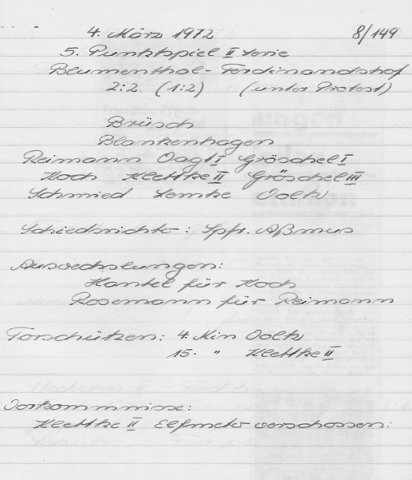 4. März 1972 8/149
5. Punktspiel II Serie
Blumenthal - Ferdinandshof
2:2 (1:2) (unter Protest)
Brüsch
Blankenhagen
Reimann Vogt I Gröschel I
Koch Klettke II Gröschel III
Schmied Lemke Voltz
Schiedsrichter: Spfr. Aßmus
Auswechslungen:
Hantel für Koch
Rosemann für Reimann
Torschützen: 4. Min Voltz
15. " Klettke II
Vorkommnisse:
Klettke II Elfmeter verschossen: